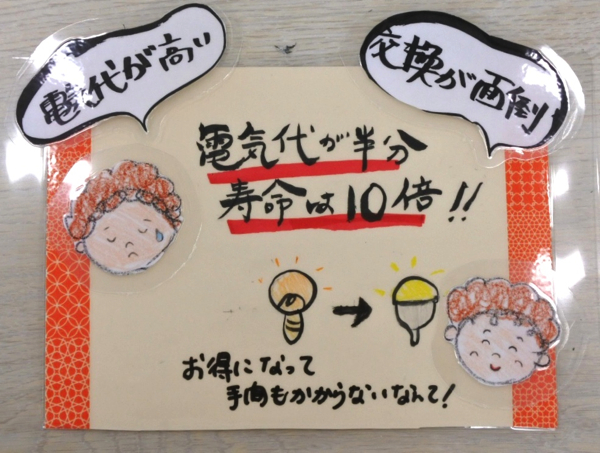 電気代が高い
交換が面倒
電気代が半分
寿命は10倍!!
お得になって
手間もかからないなんて!